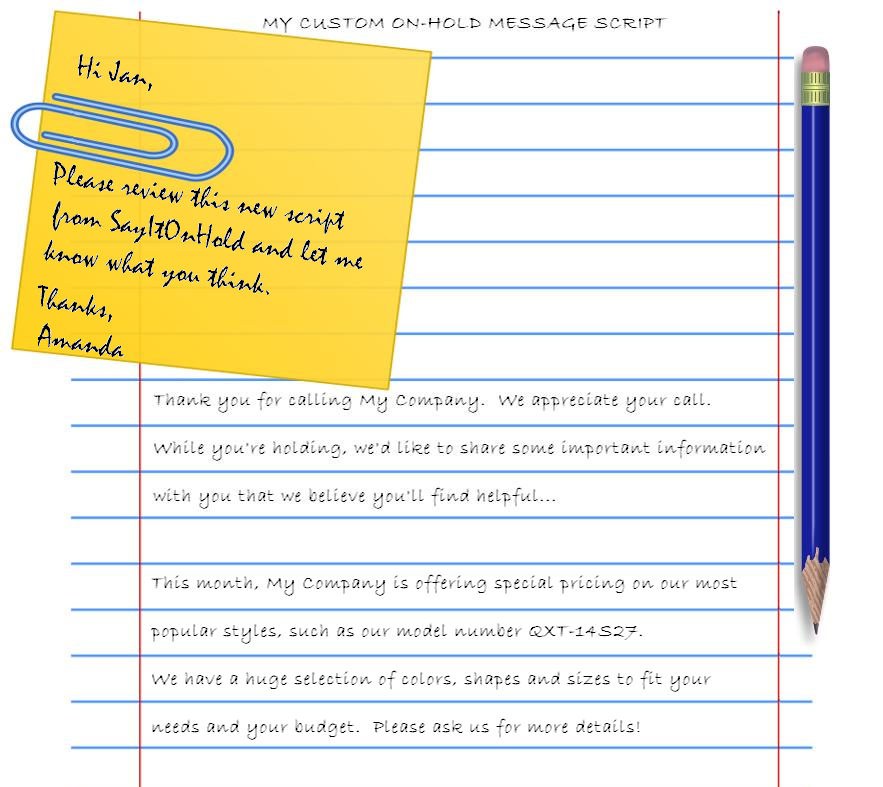 MY CUSTOM ON-HOLD MESSAGE SCRIPT
Hi Jan,
Please review this new script
from SayItOnHold and let me
know what you think.
Thanks,
Amanda
Thank you for calling My Company.  We appreciate your call.
While you're holding, we'd like to share some important information
with you that we believe you'll find helpful...
This month, My Company is offering special pricing on our most
popular styles, such as our model number QXT-14S27.
We have a huge selection of colors, shapes and sizes to fit your
needs and your budget.  Please ask us for more details!